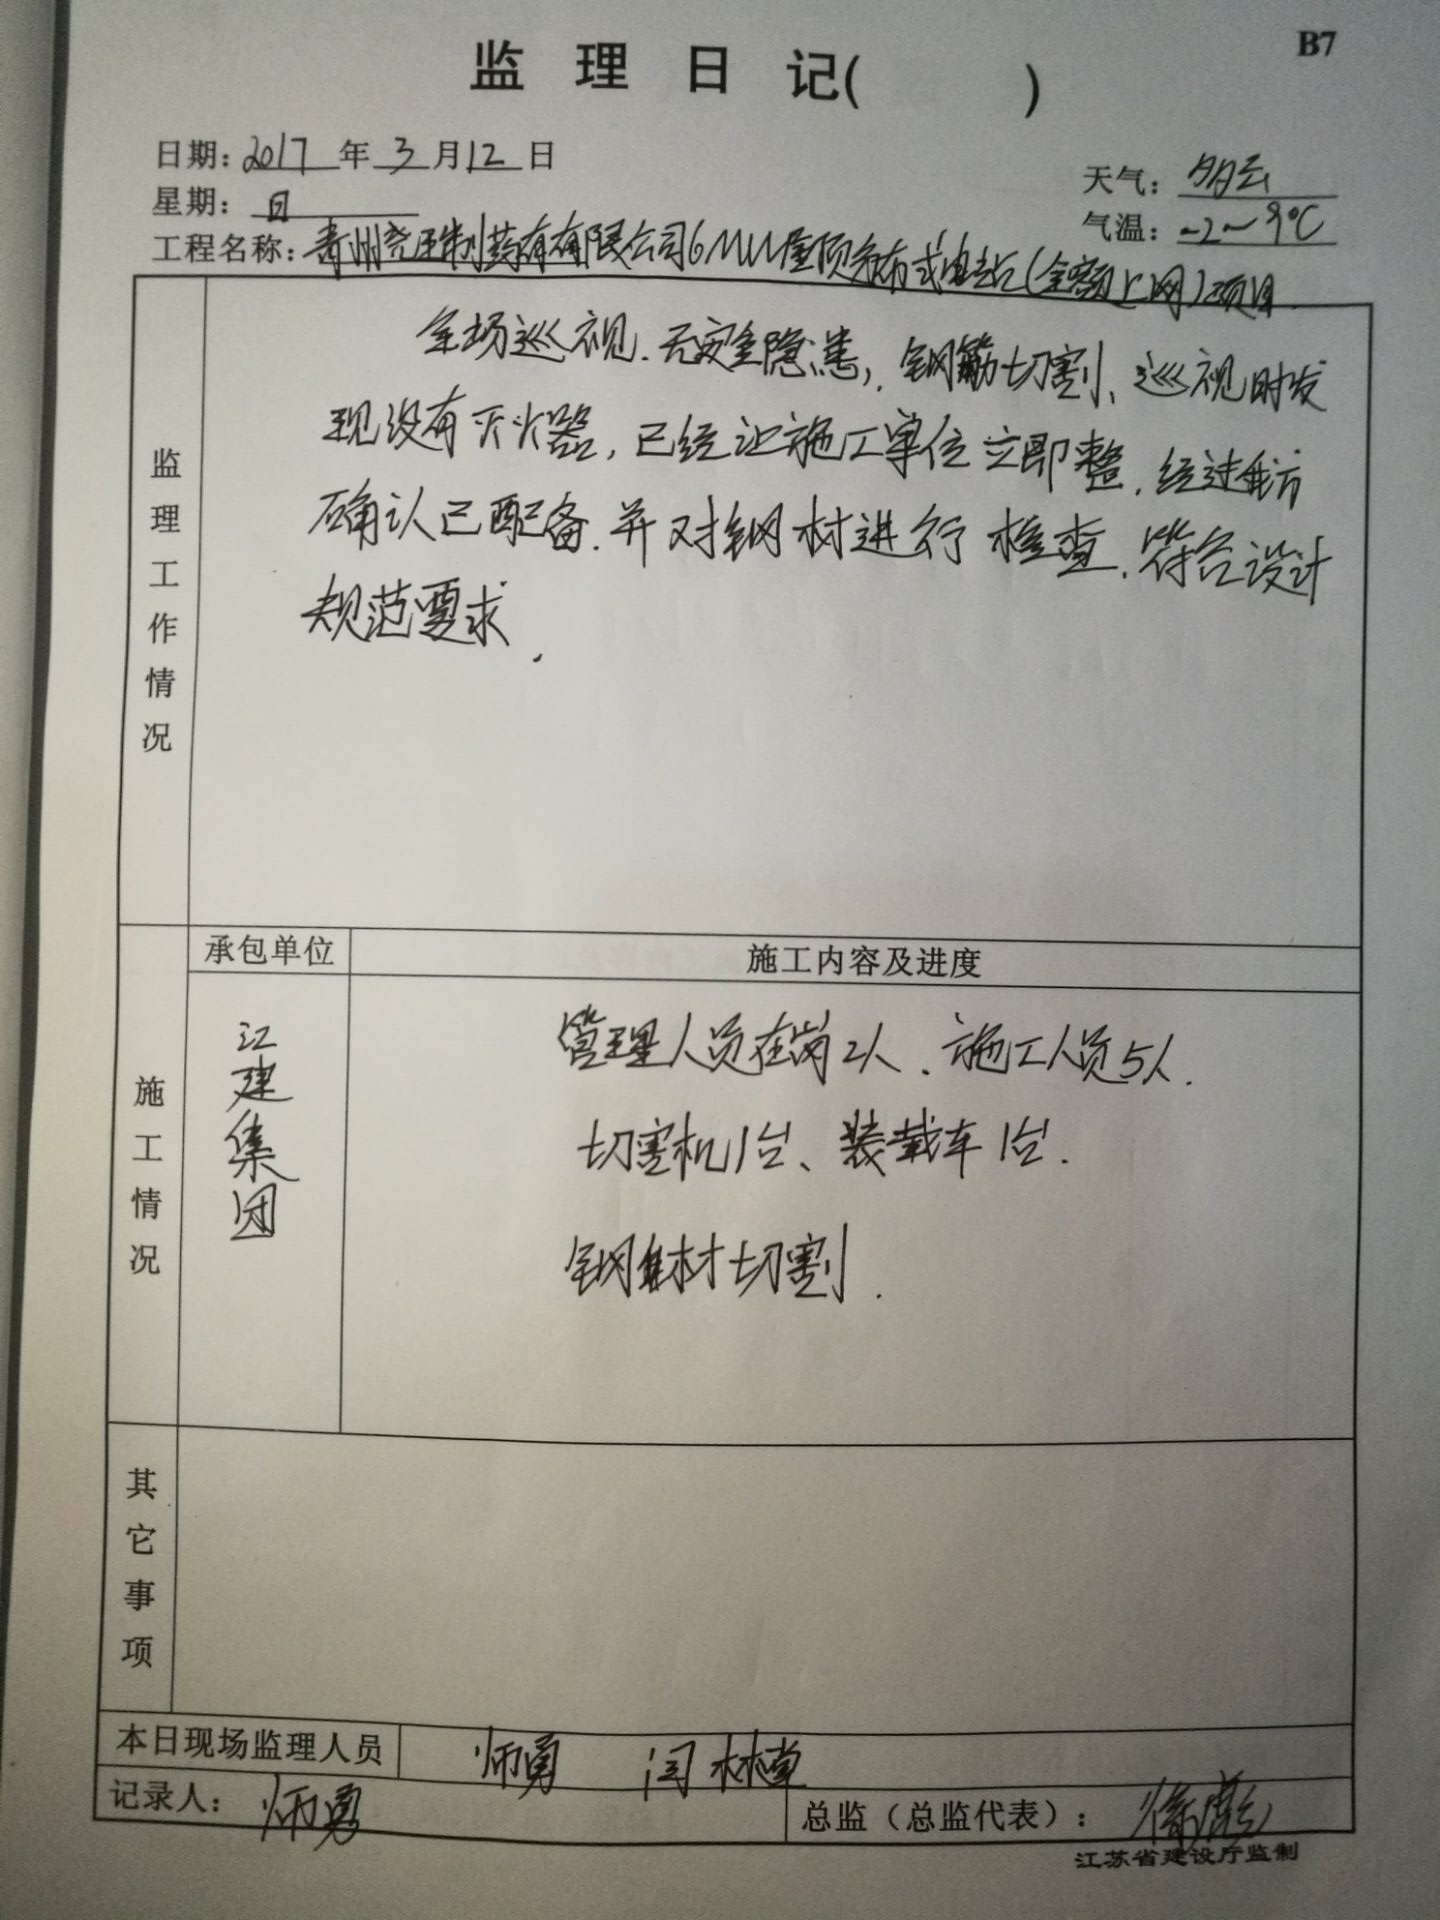 B7
监理日记( )
日期：2017年3月12日
天气：多云
星期：日
气温：-2~9℃
工程名称：青州尧王制药有有限公司6MW屋顶分布式电站(全额上网)项目.
监理工作情况
全场巡视.无安全隐患,.钢筋切割、巡视时发
现没有灭火器,已经让施工单位立即整.经过我方
确认已配备.并对钢材进行检查.符合设计
规范要求.
施工情况
承包单位 施工内容及进度
江建集团
管理人员在岗2人.施工人员5人.
切割机1台、装载车1台.
钢材切割.
其它事项
本日现场监理人员 师勇 闫林
记录人：师勇 总监（总监代表）：徐彪
江苏省建设厅监制